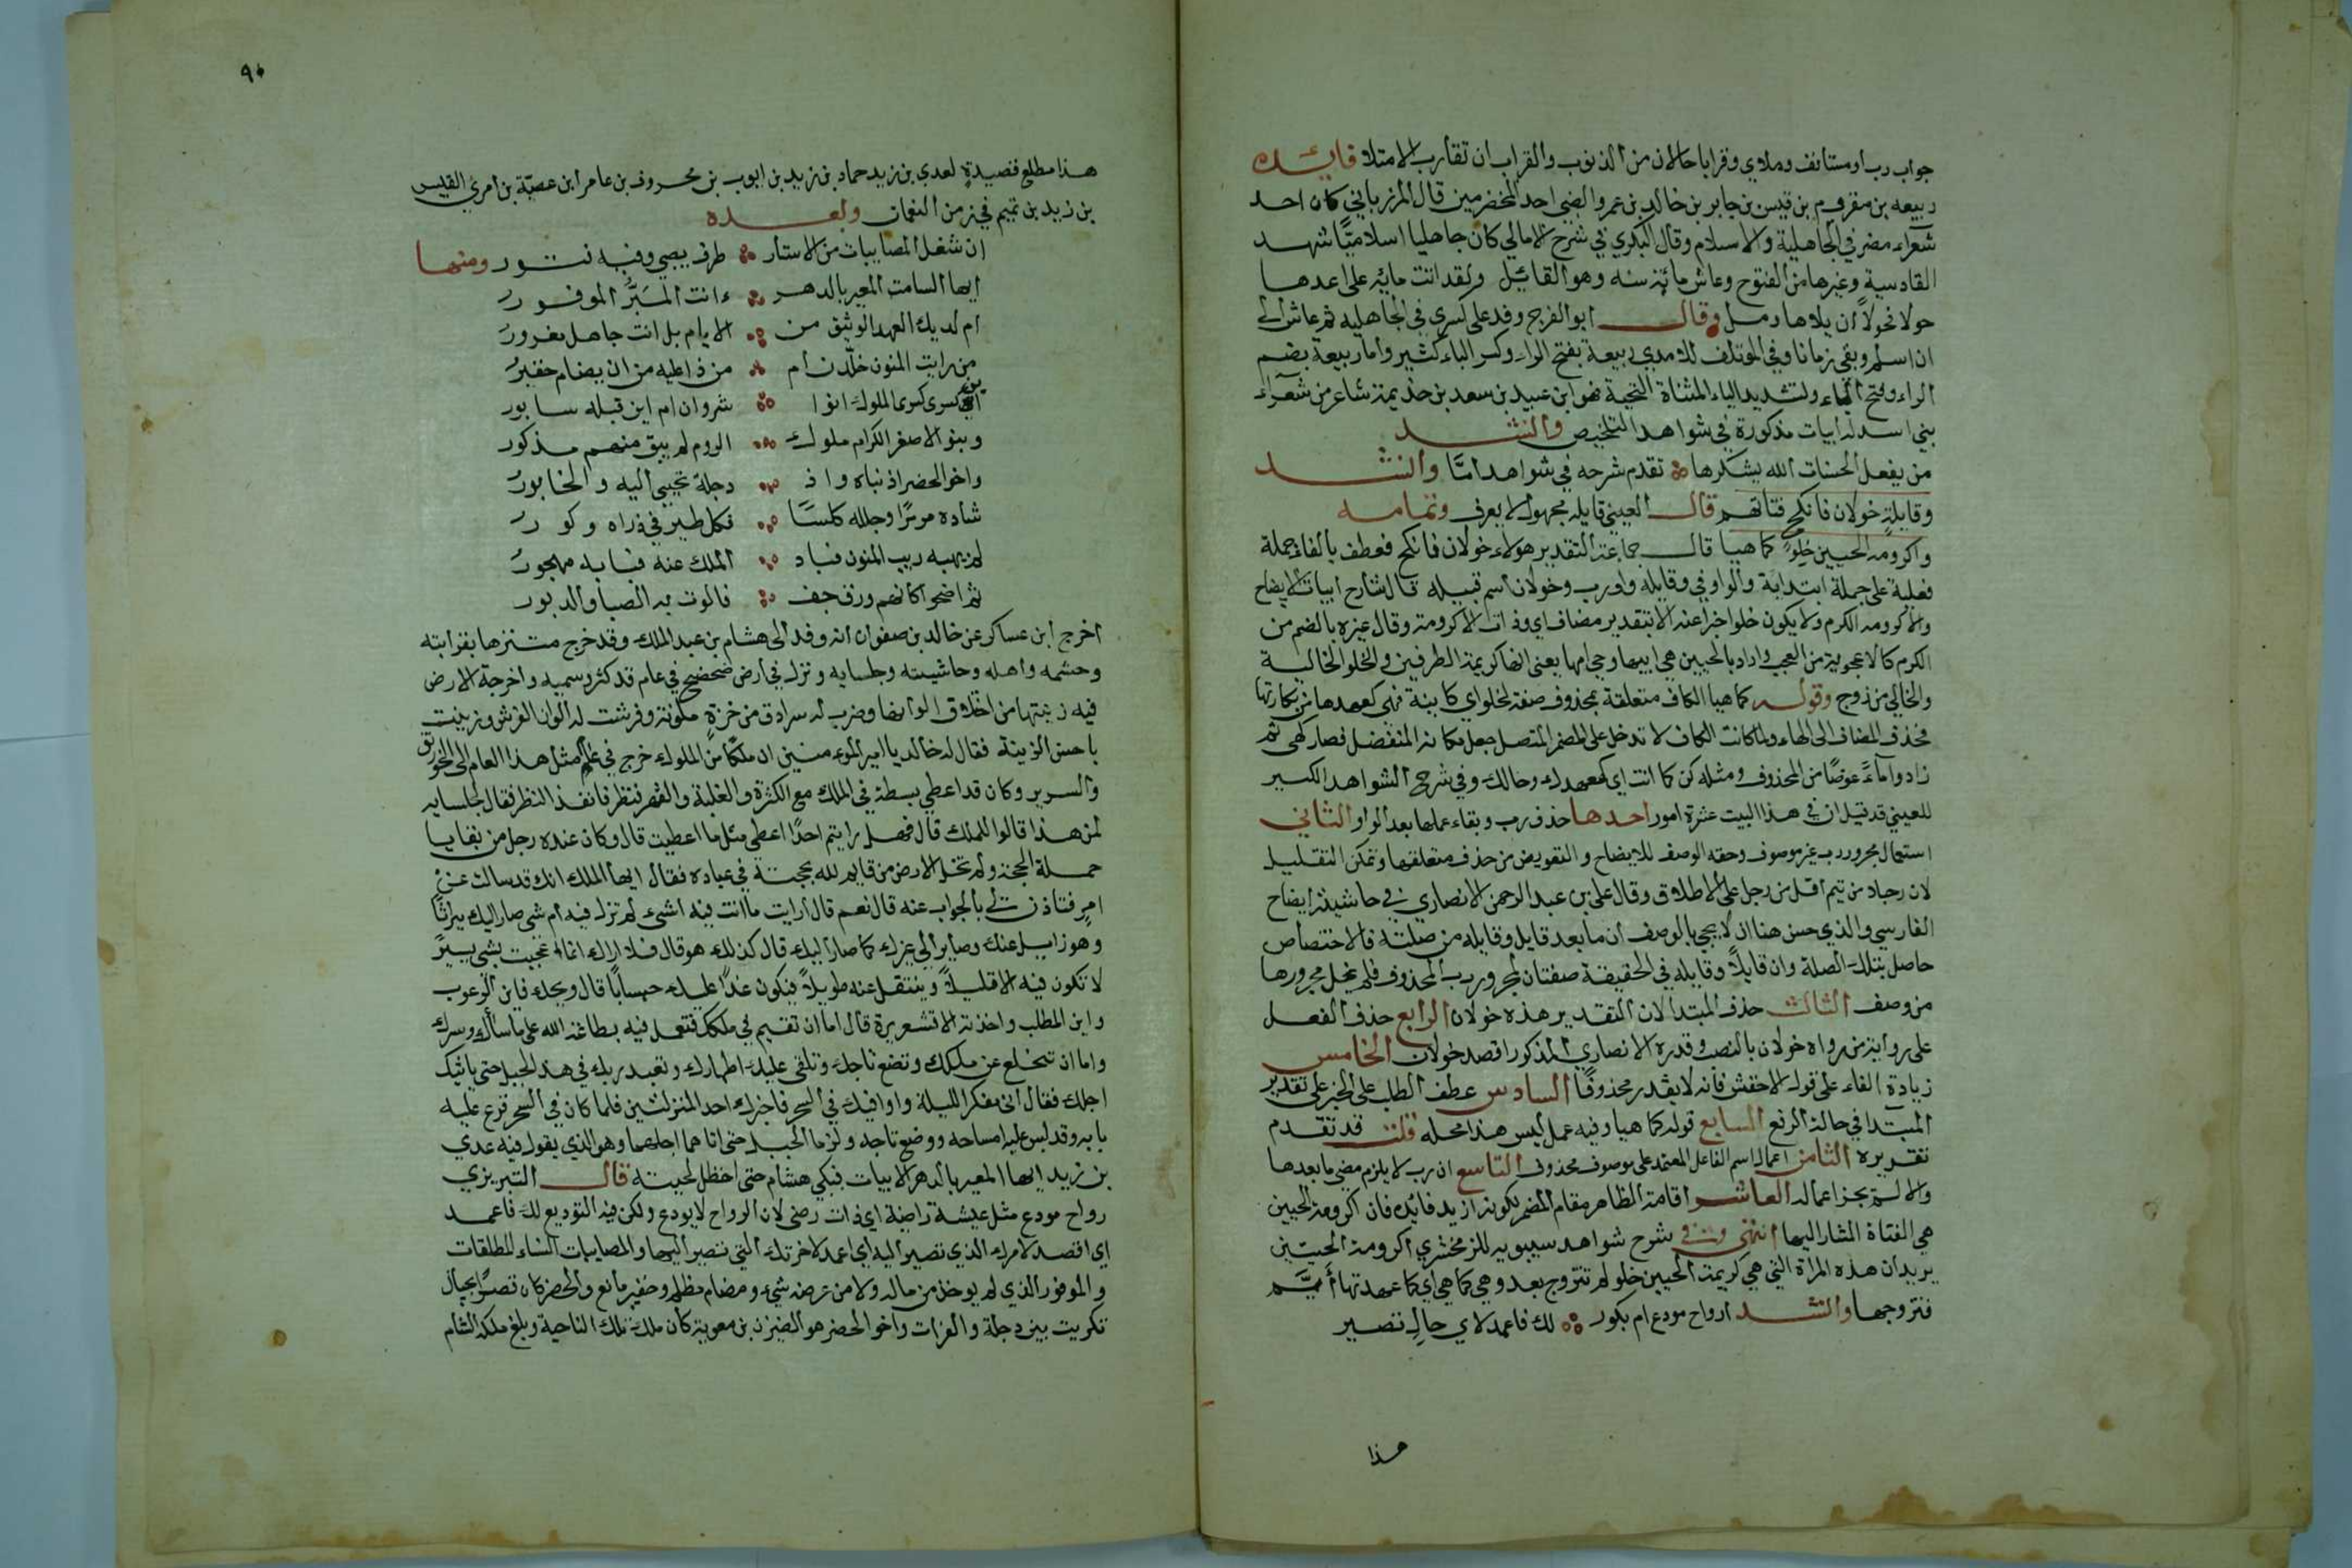 جواب رب او مستانف وملاي وقرابا حالان من الذنوب والقراب ان تقارب الامتلا فايـــده
ربيعه بن مقروم بن قيس بن جابر بن خالد بن عمرو الضبي احد المخضرمين قال المرزباني كان احد
شعراء مضر في الجاهلية والاسلام وقال البكري في شرح الامالي كان جاهليا اسلاميًّا شهد
القادسية وغيرها من الفتوح وعاش مائة سنه وهو القائل ولقد اتت مايه على اعدها
حولا فحولاً ان بلاها مل وقال ابو الفرج وفد على كسرى في الجاهليه ثم عاش الى
ان اسلم وبقي زمانا وفي المؤتلف للامدي ربيعة بفتح الراء وكسر الباء كثير واما ربيعة بضم
الراء وفتح الباء وتشديد الياء المثناة التحتية فهو ابن عبيد بن سعد بن جذيمة شاعر من شعراء
بني اسد له ابيات مذكورة في شواهد التلخيص وانشد
من يفعل الحسنات الله يشكرها تقدم شرحه في شواهد امّا وانشد
وقايلةٍ خولان فانكح فتاتهم قال العيني قايله مجهول لا يعرف وتمامه
واكرومة الحيين خلوٌ كما هيا قال جماعة التقدير هولاء خولان فانكح فعطف بالفاء جملة
فعلية على جملة ابتدايه والواو في وقايله واو رب وخولان اسم قبيله قال شارح ابيات الايضاح
والاكرومه الكرم ولا يكون خلوا خبرا عنه الا بتقدير مضاف اي وذات الاكرومة وقال غيره بالضم من
الكرم كالاعجوبة من العجب واراد بالحيين حي ابيها وحي امها يعني انها كريمة الطرفين والخلو الخالية
والخالي من زوج وقوله كما هيا الكاف متعلقة بمحذوف صفة لخلو اي كاينة فهي كعهدها من بكارتها
فحذف المضاف الى الهاء ولما كانت الكاف لا تدخل على المضمر المتصل جعل مكانه المنفصل فصار كهي ثم
زادوا ماءً عوضًا من المحذوف ومثله كن كما انت اي كعهدك وحالك وفي شرح الشواهد الكبير
للعيني قد قيل ان في هذا البيت عشرة امور احدها حذف رب وبقاء عملها بعد الواو الثاني
استعمال مجرور رب غير موصوف وحقه الوصف للايضاح والتعويض من حذف متعلقها وتمكن التقليل
لان رجلا من تيم اقل من رجل على الاطلاق وقال علي بن عبد الرحمن الانصاري في حاشية ايضاح
الفارسي والذي حسن هنا ان لا يجي بالوصف ان ما بعد قايل وقايله من صلته فالاختصاص
حاصل بتلك الصلة وان قايلاً وقايله في الحقيقة صفتان لمجرور رب المحذوف فلم يخل مجرورها
من وصف الثالث حذف المبتدا لان التقدير هذه خولان الرابع حذف الفعل
على رواية من رواه خولان بالنصب وقدره الانصاري المذكور اقصد خولان الخامس
زيادة الفاء على قول الاخفش فانه لا يقدر محذوفًا السادس عطف الطلب على الخبر على تقدير
المبتدا في حالة الرفع السابع قوله كما هيا وفيه عمل ليس هذا محله قلت قد تقدم
تقريره الثامن اعمال اسم الفاعل المعتمد على موصوف محذوف التاسع ان رب لا يلزم مضي ما بعدها
والا لم يجز اعماله العاشر اقامة الظاهر مقام المضمر لكونه ازيد فايدة فان اكرومة الحيين
هي الفتاة المشار اليها انتهى وفي شرح شواهد سيبويه للزمخشري اكرومة الحيين
يريد ان هذه المراة التي هي كريمة الحيين خلو لم تتزوج بعد وهي كما هي اي كما عهدتها أيّم
فتزوجها وانشد ارواح مودع ام بكور لك فاعمد لاي حالٍ تصير
هذا
٩٠
هذا مطلع قصيدةٍ لعدي بن زيد حماد بن زيد بن ايوب بن محروف بن عامر ابن عصيّة بن امرئ القيس
بن زيد بن تميم في زمن النعمان وبعده
ان شغل المصابيات من الاستار طرف يصبي وفيه فتور ومنها
ايها الشامت المعير بالدهر ءانت المبَرَّؤ الموفور
ام لديك العهد الوثيق من الايام بل انت جاهل مغرورُ
من رايت المنون خلّدن أم من ذا عليه من ان يضام خفيرُ
اين كسرى كسرى الملوك انوا شروان ام اين قبله سابور
وبنو الاصفر الكرام ملوك الروم لم يبق منهم مذكور
واخو الحضر اذ بناه واذ دجلة تجبى اليه والخابورُ
شاده مرمرًا وجلله كلسًا فللطير في ذراه وكور
لم يهبه ريب المنون فباد الملك عنه فبابه مهجورُ
ثم اضحوا كانهم ورق جف فالوت به الصبا والدبور
اخرج ابن عساكر عن خالد بن صفوان انه وفد الى هشام بن عبد الملك وقد خرج متنزها بقرابته
وحشمه واهله وحاشيته وجلسايه ونزل في ارض صحضح في عام قد كثر وسميه واخرجة الارض
فيه زينتها من اختلاف الوانها وضرب له سرادق من خزةٍ ملونة وفرشت له الوان الفرش وزينت
باحسن الزينة فقال له خالد يا امير المومنين ان ملكًا من الملوك خرج في عام مثل هذا العام الى الخورنق
والسرير وكان قد اعطي بسطة في الملك مع الكثرة والغلبة والقهر فنظر فانفذ النظر فقال لجلسايه
لمن هذا قالوا للملك قال فهل رايتم احدًا اعطي مثل ما اعطيت قال وكان عنده رجل من بقايا
حملة الحجة ولم تخل الارض من قايم لله بحجته في عباده فقال ايها الملك انك قد سالت عن
امرٍ فتاذن لي بالجواب عنه قال نعم قال ارايت ما انت فيه اشيء لم تزل فيه ام شي صار اليك ميراثًا
وهو زايل عنك وصاير الى غيرك كما صار اليك قال كذلك هو قال فلا اراك انما عجبت بشي يسيرٍ
لا تكون فيه الا قليلاً وينتقل عنه طويلاً فتكون غدًا عليك حسابًا قال ويحك فاين المرغوب
واين المطلب واخذته الاقشعريرة قال اما ان تقيم في ملكك فتعمل فيه بطاعة الله على ما ساءك وسرك
واما ان تنخلع عن ملكك وتضع تاجك وتلقي عليك اطمارك وتعبد ربك في هذا الجبل حتى ياتيك
اجلك فقال اني مفكر الليلة واوافيك في السحر فاخبرك احد المنزلتين فلما كان في السحر قرع عليه
بابه وقد لبس عليه امساحه ووضع تاجه ولزما الجبل حتى اتاهما اجلهما وهو الذي يقول فيه عدي
بن زيد ايها المعير بالدهر الابيات فبكي هشام حتى اخظل لحيته قال التبريزي
رواح مودع مثل عيشة راضية اي ذات رضي لان الرواح لا يودع ولكن فيه التوديع لك فاعمد
اي اقصد لامرك الذي تصير اليه اي اعمد لاخرتك التي تصير اليها والمصابيات النساء المطلقات
والموفور الذي لم يوخذ من ماله ولا من عرضه شيء ومضام مظلم وخفير مانع والحضر كان قصرًا بجبال
تكريت بين دجلة والفرات واخو الحضر هو الضيزن بن معوية كان ملك تلك الناحية وبلغ ملكه الشام